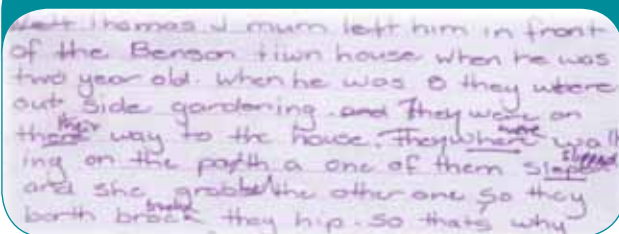 left Thomas. J mum left him in front
of the Benson tiwn house when he was
two year old. when he was 8 they where
out side gardening. and They were on
there their way to the house. They where were walk
ing on the paph a one of them sleped slipped
and she grabbe the other one, so they
borth brack they hip. So thats why